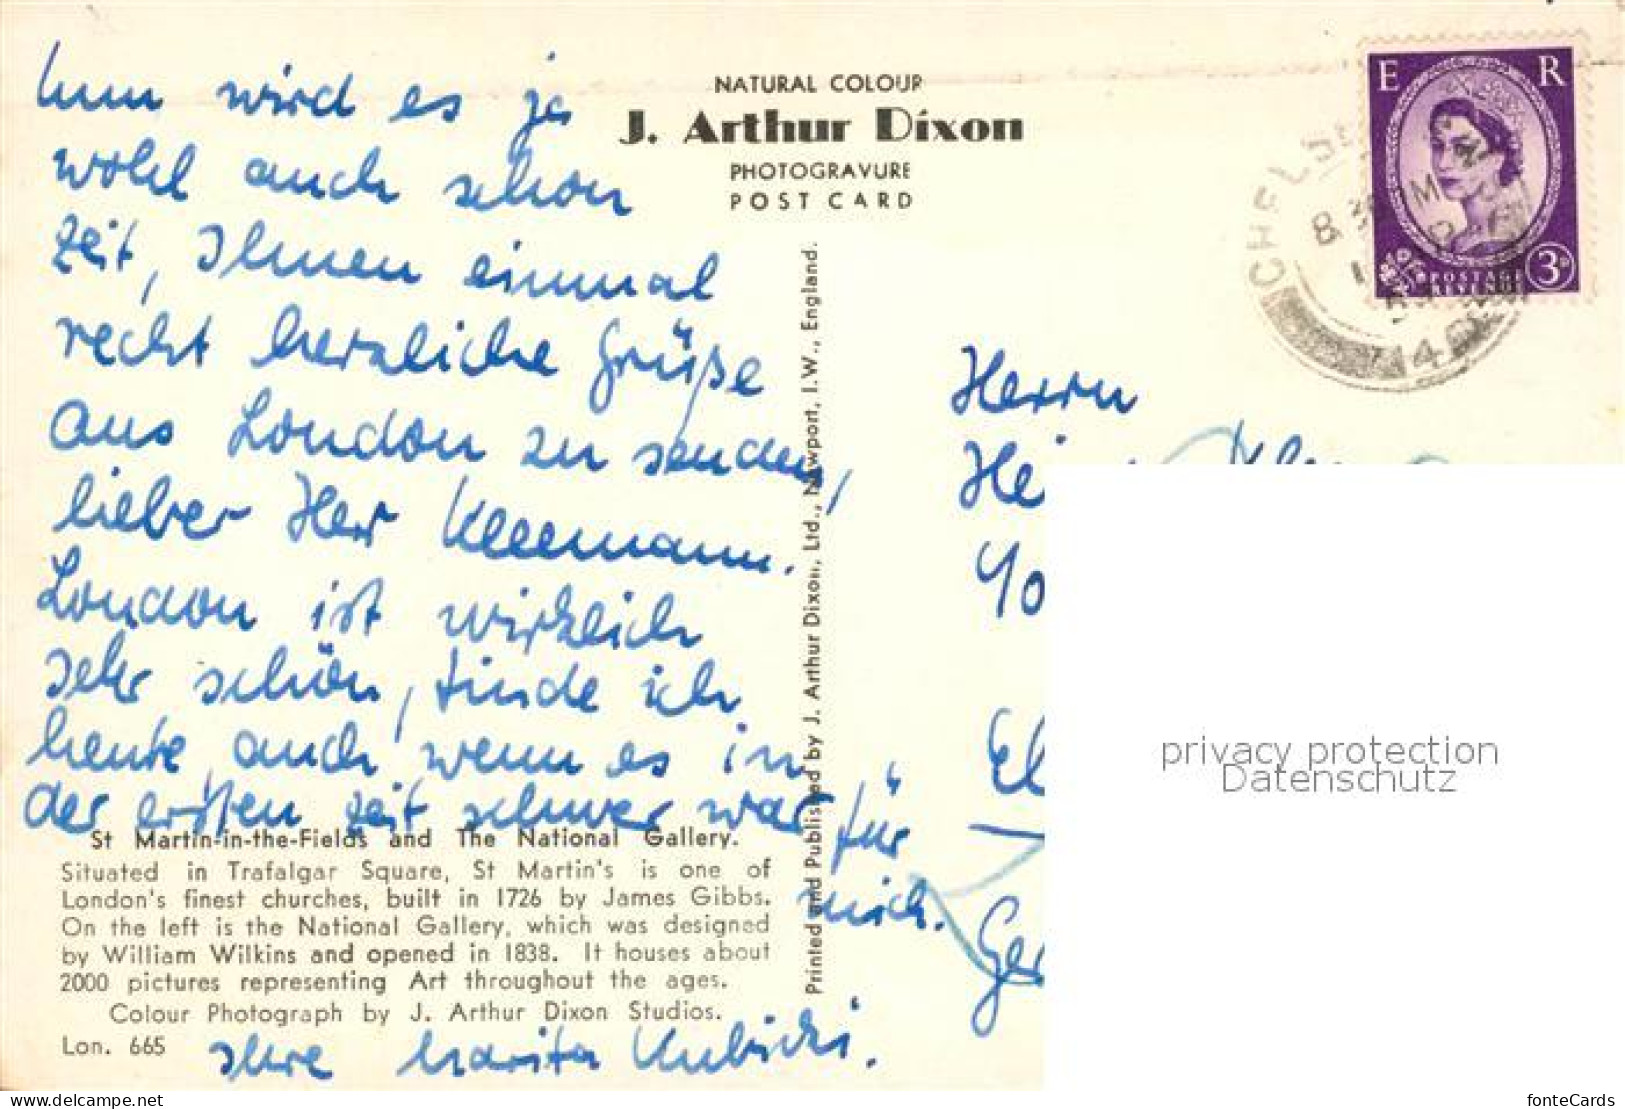 Nun wird es ja
wohl auch schon
Zeit, Ihnen einmal
recht herzliche Grüße
aus London zu senden,
lieber Herr Kleemann.
London ist wirklich
sehr schön, finde ich
heute, auch wenn es in
der ersten Zeit schwer war für
mich.
Ihre Marita Kubicki.
NATURAL COLOUR
J. Arthur Dixon
PHOTOGRAVURE
POST CARD
Printed and Published by J. Arthur Dixon, Ltd., Newport, I.W., England.
St Martin-in-the-Fields and The National Gallery.
Situated in Trafalgar Square, St Martin's is one of
London's finest churches, built in 1726 by James Gibbs.
On the left is the National Gallery, which was designed
by William Wilkins and opened in 1838. It houses about
2000 pictures representing Art throughout the ages.
Colour Photograph by J. Arthur Dixon Studios.
Lon. 665
E R
POSTAGE
REVENUE
3D
Herrn
privacy protection
Datenschutz
fonteCards